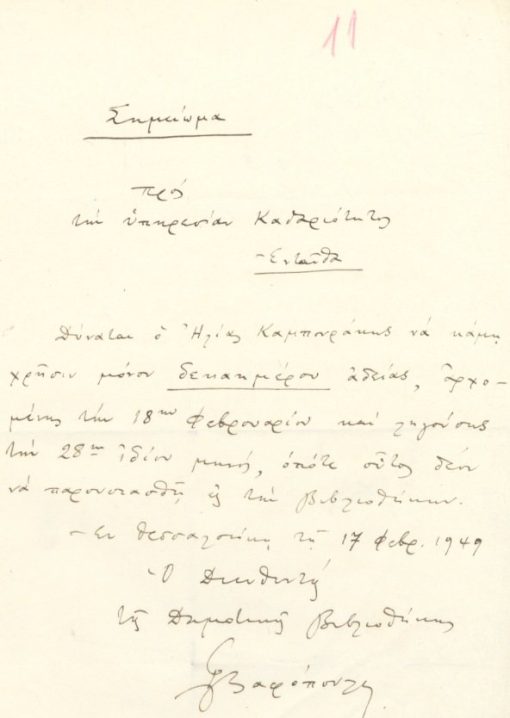 11
Σημείωμα
πρὸς
τὴν ὑπηρεσίαν Καθαριότητος
Ἐνταῦθα
Δύναται ὁ Ἠλίας Καμπουράκης νὰ κάμῃ
χρῆσιν μόνον δεκαημέρου ἀδείας, ἀρχο-
μένης τὴν 18ην Φεβρουαρίου καὶ ληγούσης
τὴν 28ην ἰδίου μηνός, ὁπότε οὗτος δέον
νὰ παρουσιασθῇ εἰς τὴν Βιβλιοθήκην.
Ἐν Θεσσαλονίκῃ τῇ 17 Φεβρ. 1949
Ὁ Διευθυντὴς
τῆς Δημοτικῆς Βιβλιοθήκης
Γ Βαφόπουλος